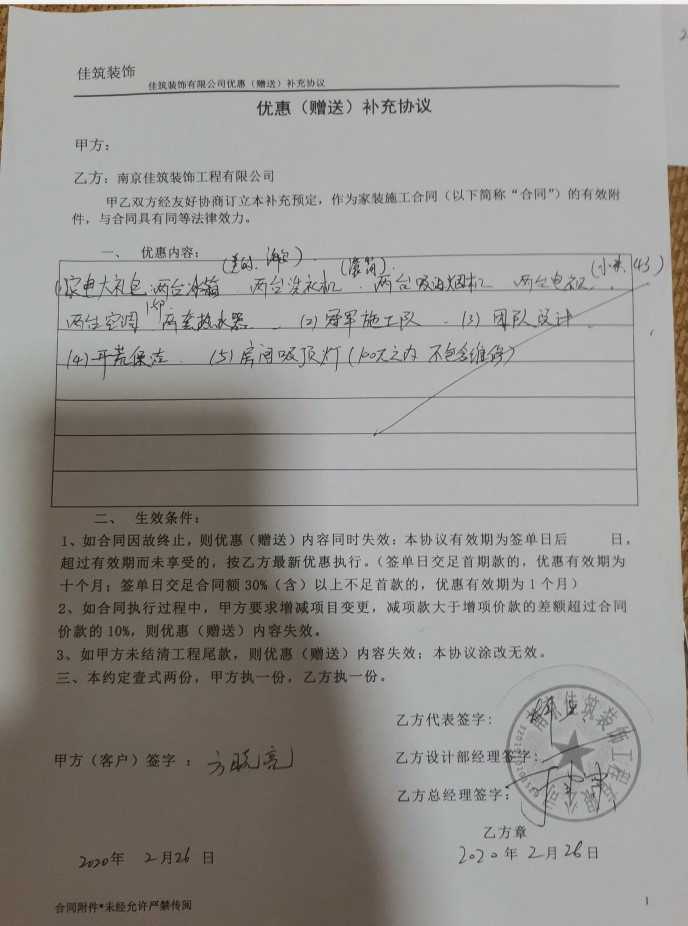 佳筑装饰
佳筑装饰有限公司优惠（赠送）补充协议
优惠（赠送）补充协议
甲方：
乙方：南京佳筑装饰工程有限公司
甲乙双方经友好协商订立本补充预定，作为家装施工合同（以下简称“合同”）的有效附
件，与合同具有同等法律效力。
一、 优惠内容：
(滚筒)
(小米 43)
(1)家电大礼包 两台冰箱 两台洗衣机 两台吸油烟机 两台电视
1.5P
两台空调 两套热水器 (2) 冠军施工队 (3) 团队设计
(4) 开荒保洁 (5) 房间吸顶灯(100元之内 不包含维修)
二、 生效条件：
1、如合同因故终止，则优惠（赠送）内容同时失效；本协议有效期为签单日后 日。
超过有效期而未享受的，按乙方最新优惠执行。（签单日交足首期款的，优惠有效期为
十个月；签单日交足合同额 30%（含）以上不足首款的，优惠有效期为 1 个月）
2、如合同执行过程中，甲方要求增减项目变更，减项款大于增项价款的差额超过合同
价款的 10%，则优惠（赠送）内容失效。
3、如甲方未结清工程尾款，则优惠（赠送）内容失效；本协议涂改无效。
三、本约定壹式两份，甲方执一份，乙方执一份。
乙方代表签字：
甲方（客户）签字 ： 方晓亮
乙方设计部经理签字：
乙方总经理签字：
南京佳筑装饰工程有限公司
乙方章
2020年 2月26日
2020年 2月26日
合同附件*未经允许严禁传阅
1